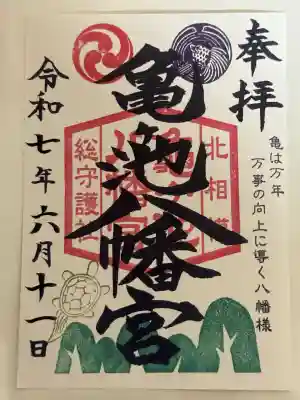 奉拝
亀は万年
万事の向上に導く八幡様
北相模
亀ヶ池八幡宮
総守護社
亀ヶ池八幡宮
令和七年六月十一日